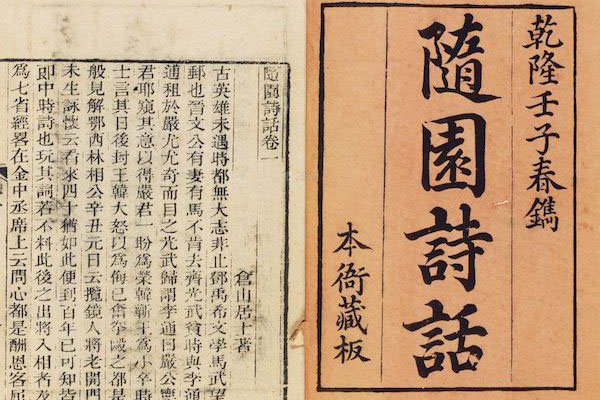 乾隆壬子春鐫
隨園詩話
本衙藏板
隨園詩話卷一
倉山居士著
古英雄未遇時都無大志非止鄧禹希文學馬武望
郵也晉文公有妻有馬不肯去齊光武貧時與李通
逋租於嚴尤尤奇而目之光武歸謂李通曰嚴公寧
君耶窺其意以得嚴君一盼爲榮韓蘄王爲小卒時
士言其日後封王韓大怒以爲侮己奮拳毆之都是
般見解鄂西林相公辛丑元日云攬鏡人將老開門
未生詠懷云看來四十猶如此便到百年已可知皆
即中時詩也玩其詞若不料此後之出將入相者及
爲七省經畧在金中丞席上云問心都是酬恩客屈